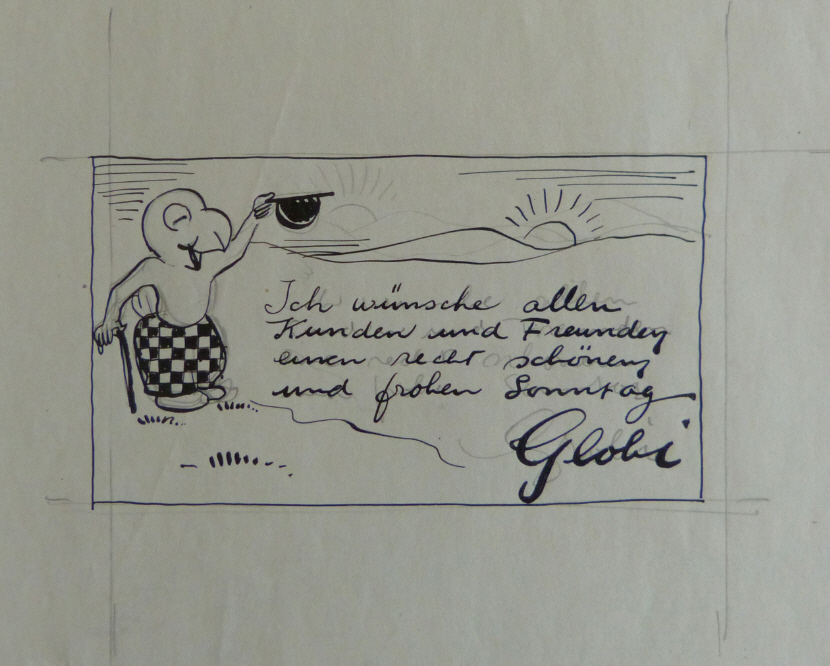 Ich wünsche allen
Kunden und Freunden
einen recht schönen
und frohen Sonntag
Globi